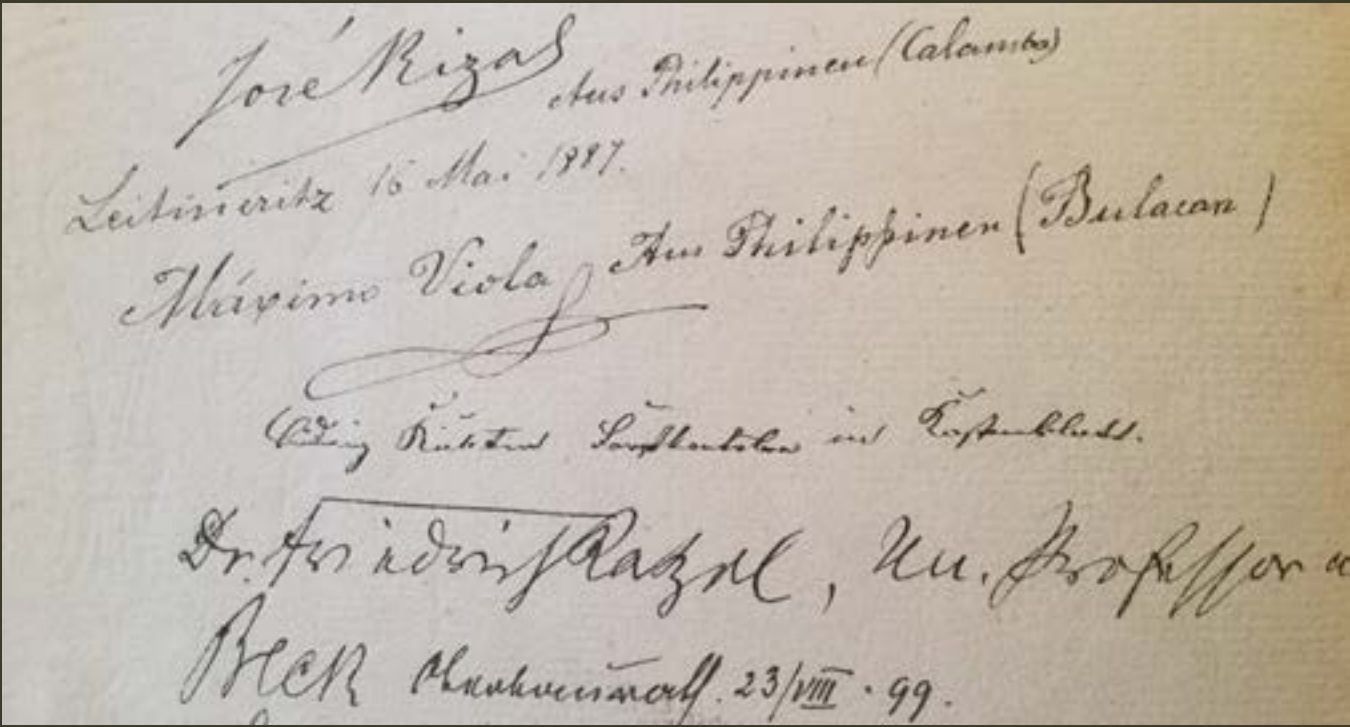 José Rizal Aus Philippinen (Calamba)
Leitmeritz 16 Mai 1887.
Máximo Viola Aus Philippinen (Bulacan)
in
Dr. Friedrich Ratzel, Un. Professor
Beck 23/VIII . 99.